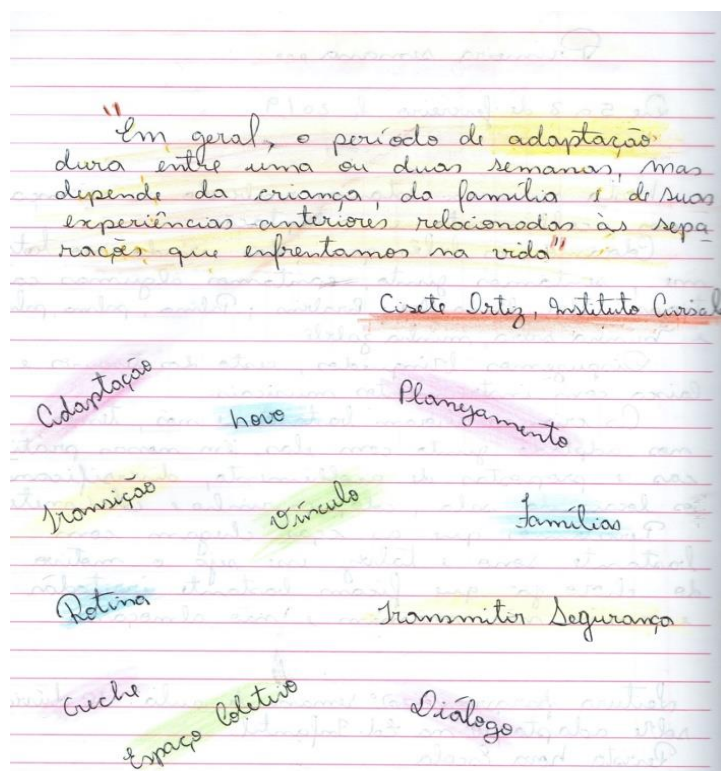 "Em geral, o período de adaptação
dura entre uma ou duas semanas, mas
depende da criança, da família e de suas
experiências anteriores relacionadas às sepa
rações que enfrentamos na vida"
Cisete Ortiz, Instituto
Adaptação
novo
Planejamento
Transição
Vínculo
Famílias
Rotina
Transmitir Segurança
Creche
Espaço Coletivo
Diálogo